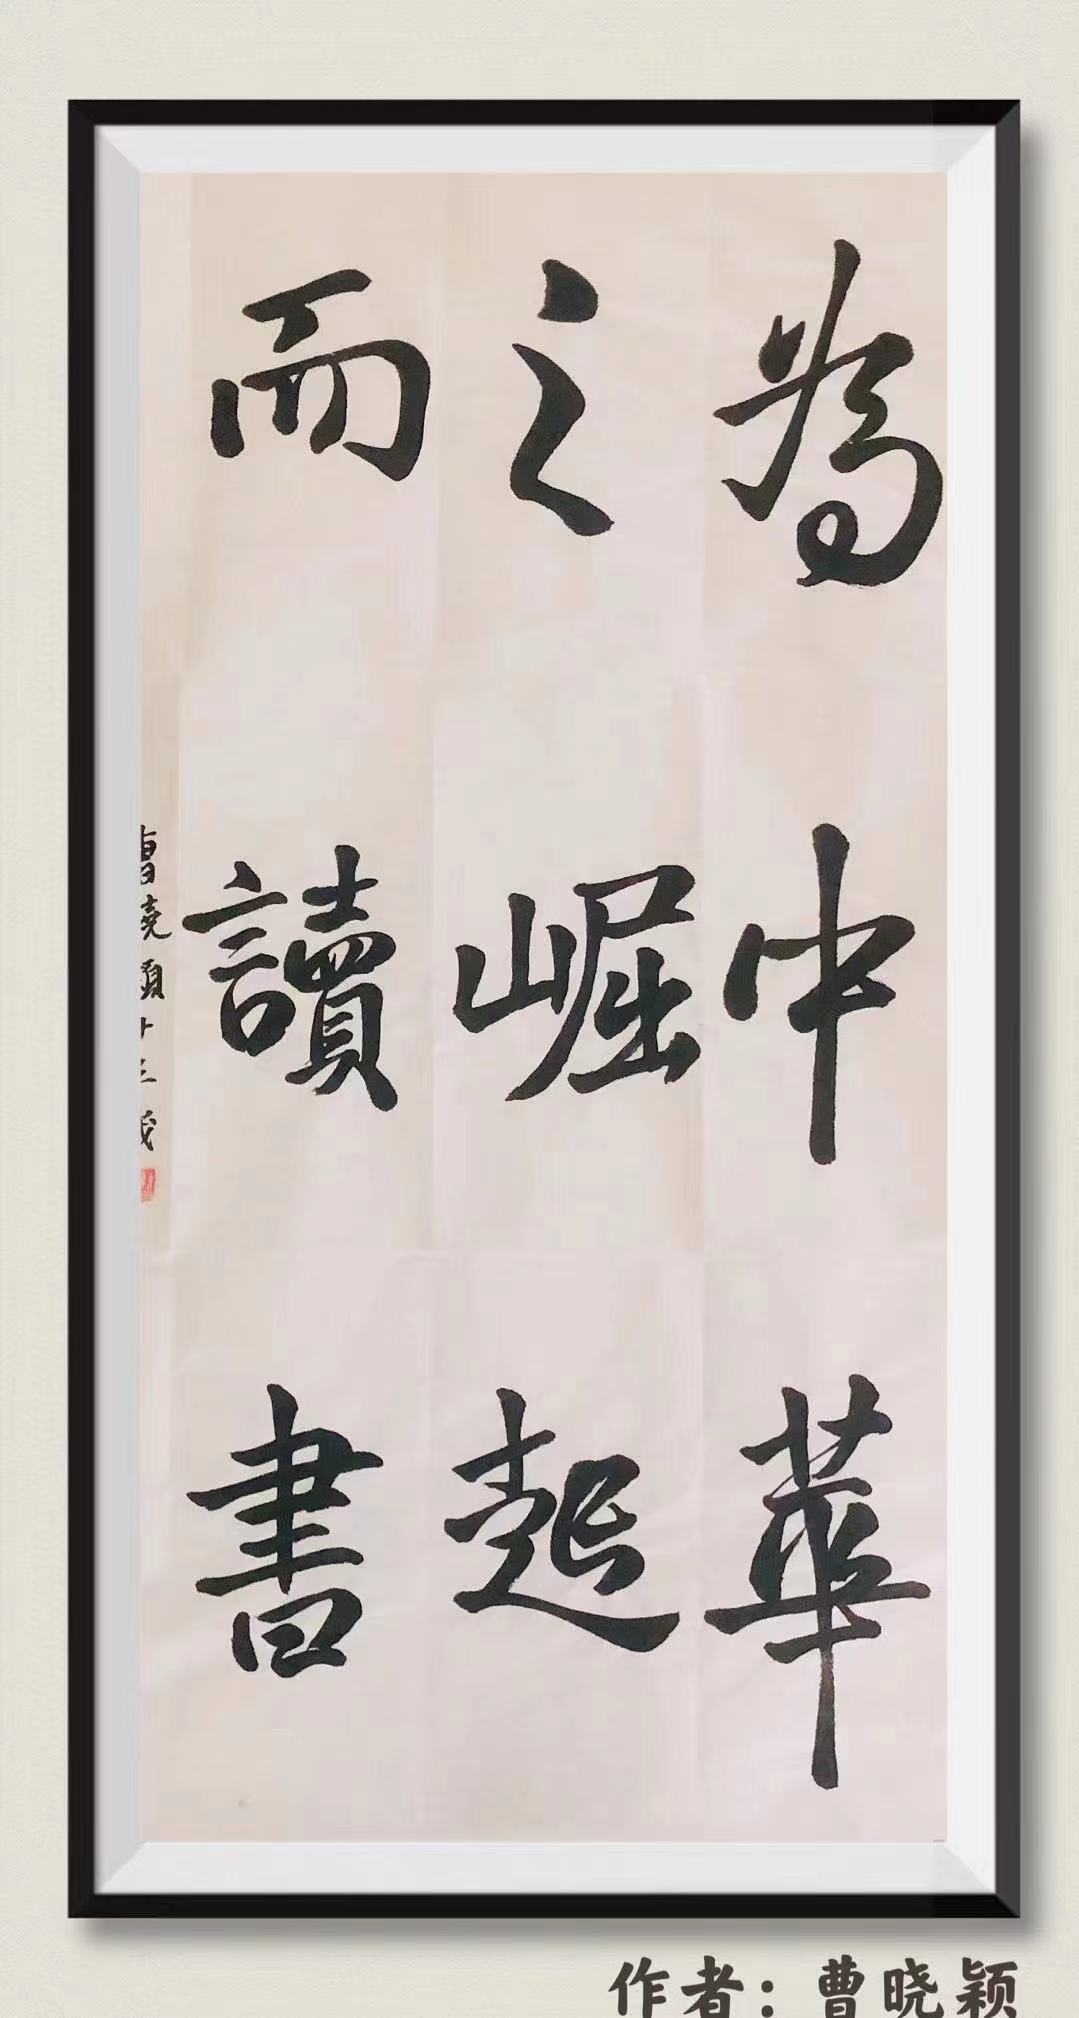 為中華
之崛起
而讀書
曹曉穎十三歲
作者：曹晓颖